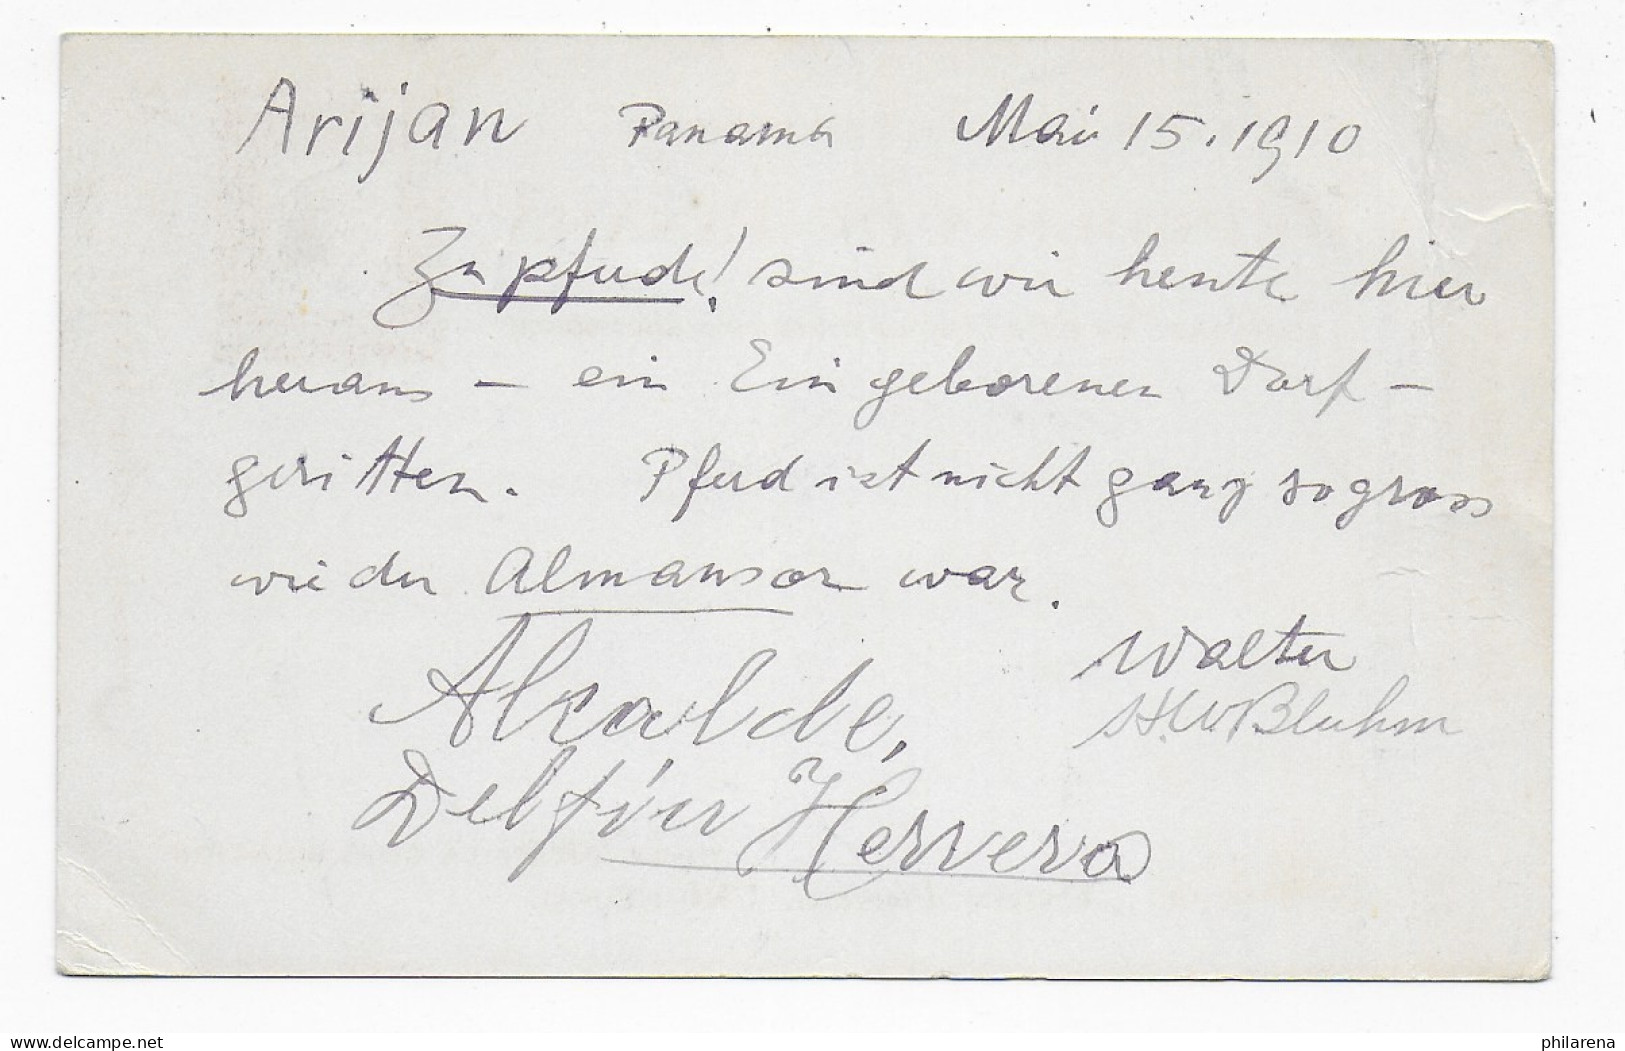 Arijan Panama Mai 15. 1910
Zu pferde! sind wir heute hier
heraus – ein Eingeborenen Dorf –
geritten. Pferd ist nicht ganz so gross
wie der Almansor war.
Walter
H.W. Bluhm
Alcalde,
Delfín Herrera
delcampe.net
philarena